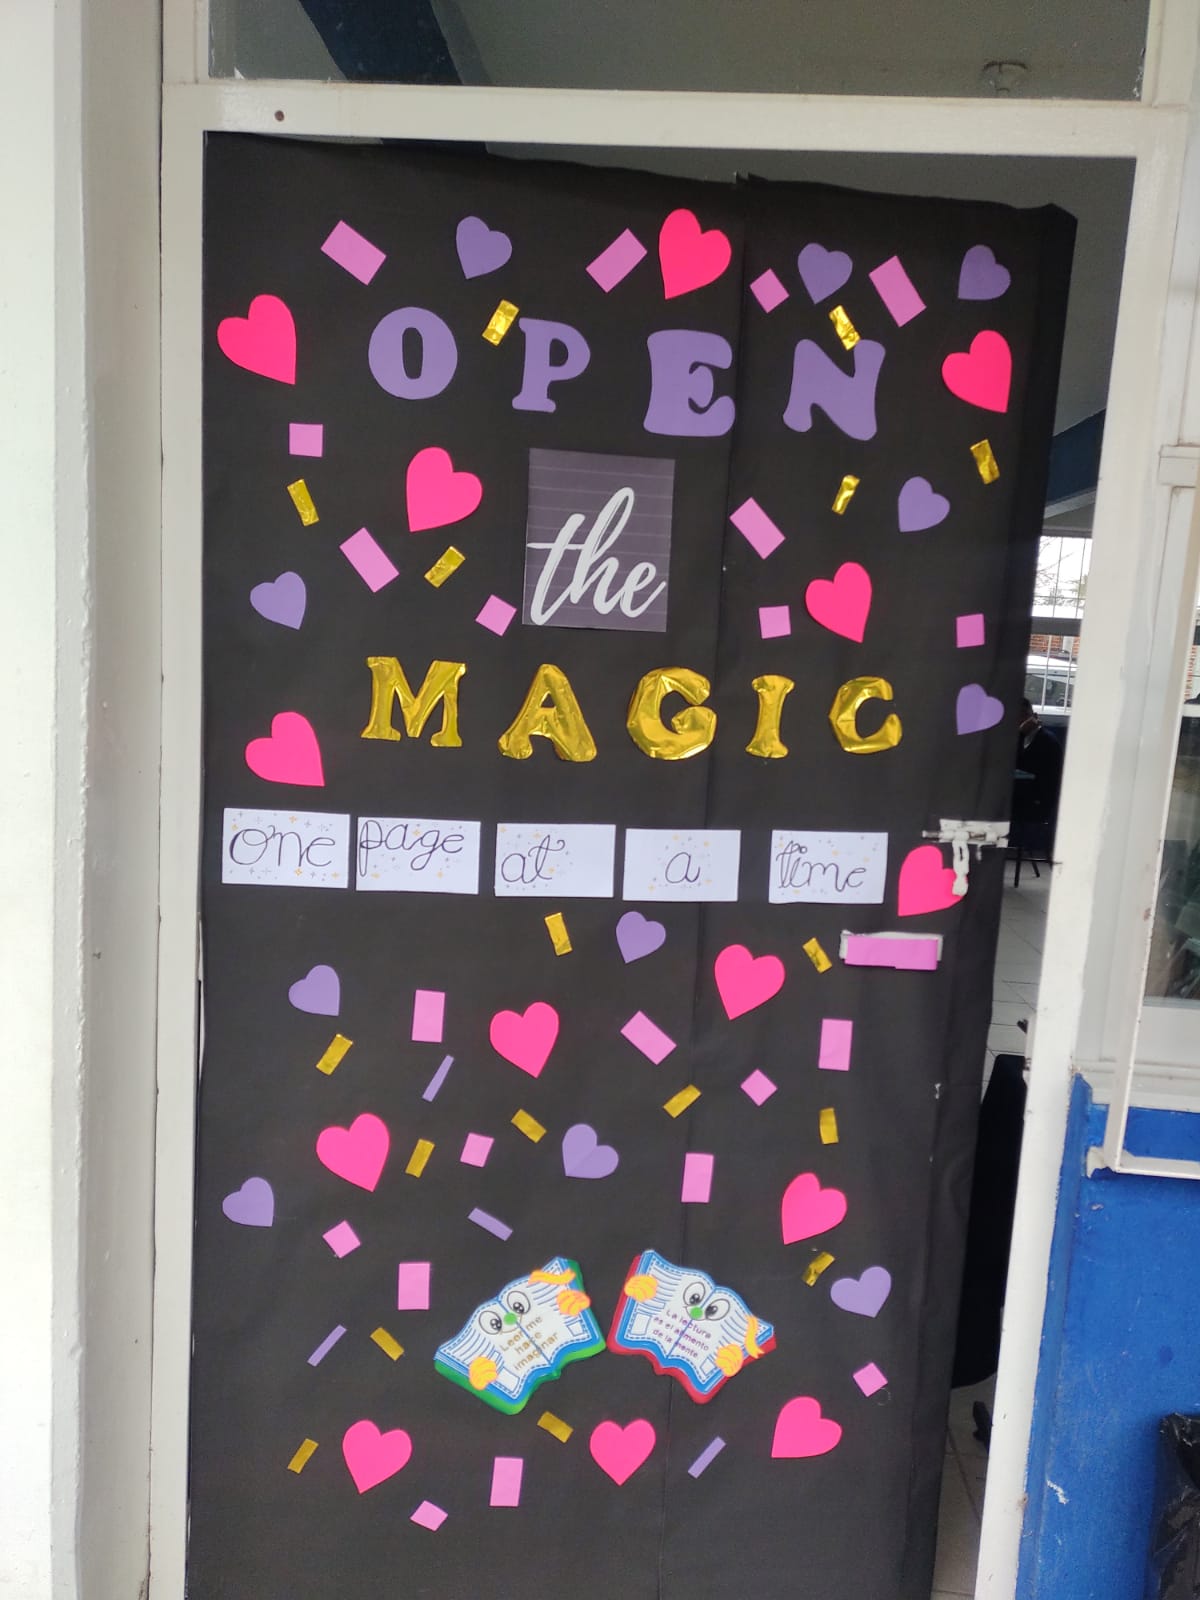 OPEN
the
MAGIC
one page at a time
Leer me
hace
imaginar
La lectura
es el alimento
de la mente